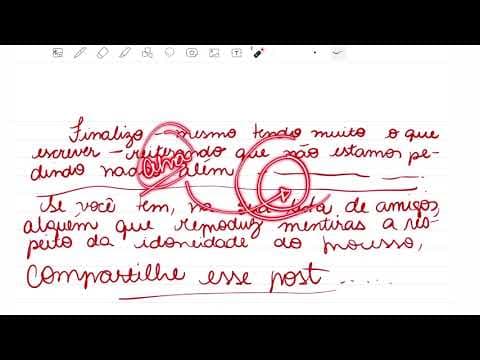 Finalizo - mesmo tendo muito o que
escrever - reiterando que não estamos pe-
dindo nada além
Se você tem, na sua lista de amigos,
alguém que reproduz mentiras a res-
peito da idoneidade do processo,
Compartilhe esse post .....